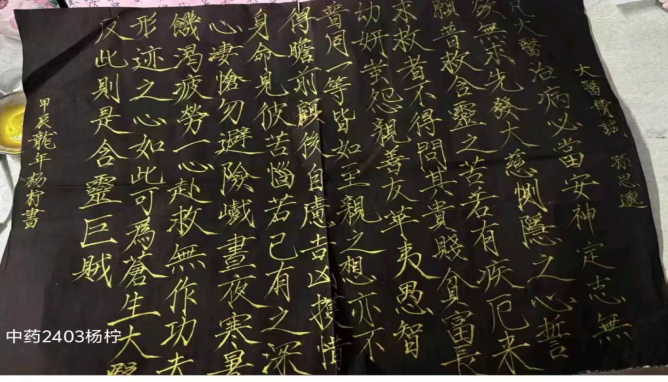 大醫精誠 孫思邈
凡大醫治病必當安神定志無
欲無求先發大慈惻隱之心誓
願普救含靈之苦若有疾厄来
求救者不得問其貴賤貧富長
幼妍蚩怨親善友華夷愚智
普同一等皆如至親之想亦不
得瞻前顧後自慮吉凶護惜
身命見彼苦惱若己有之深
心悽愴勿避險戲晝夜寒暑
饑渴疲勞一心赴救無作功夫
形迹之心如此可為蒼生大醫
反此則是含靈巨賊
甲辰龍年杨柠書
中药2403杨柠